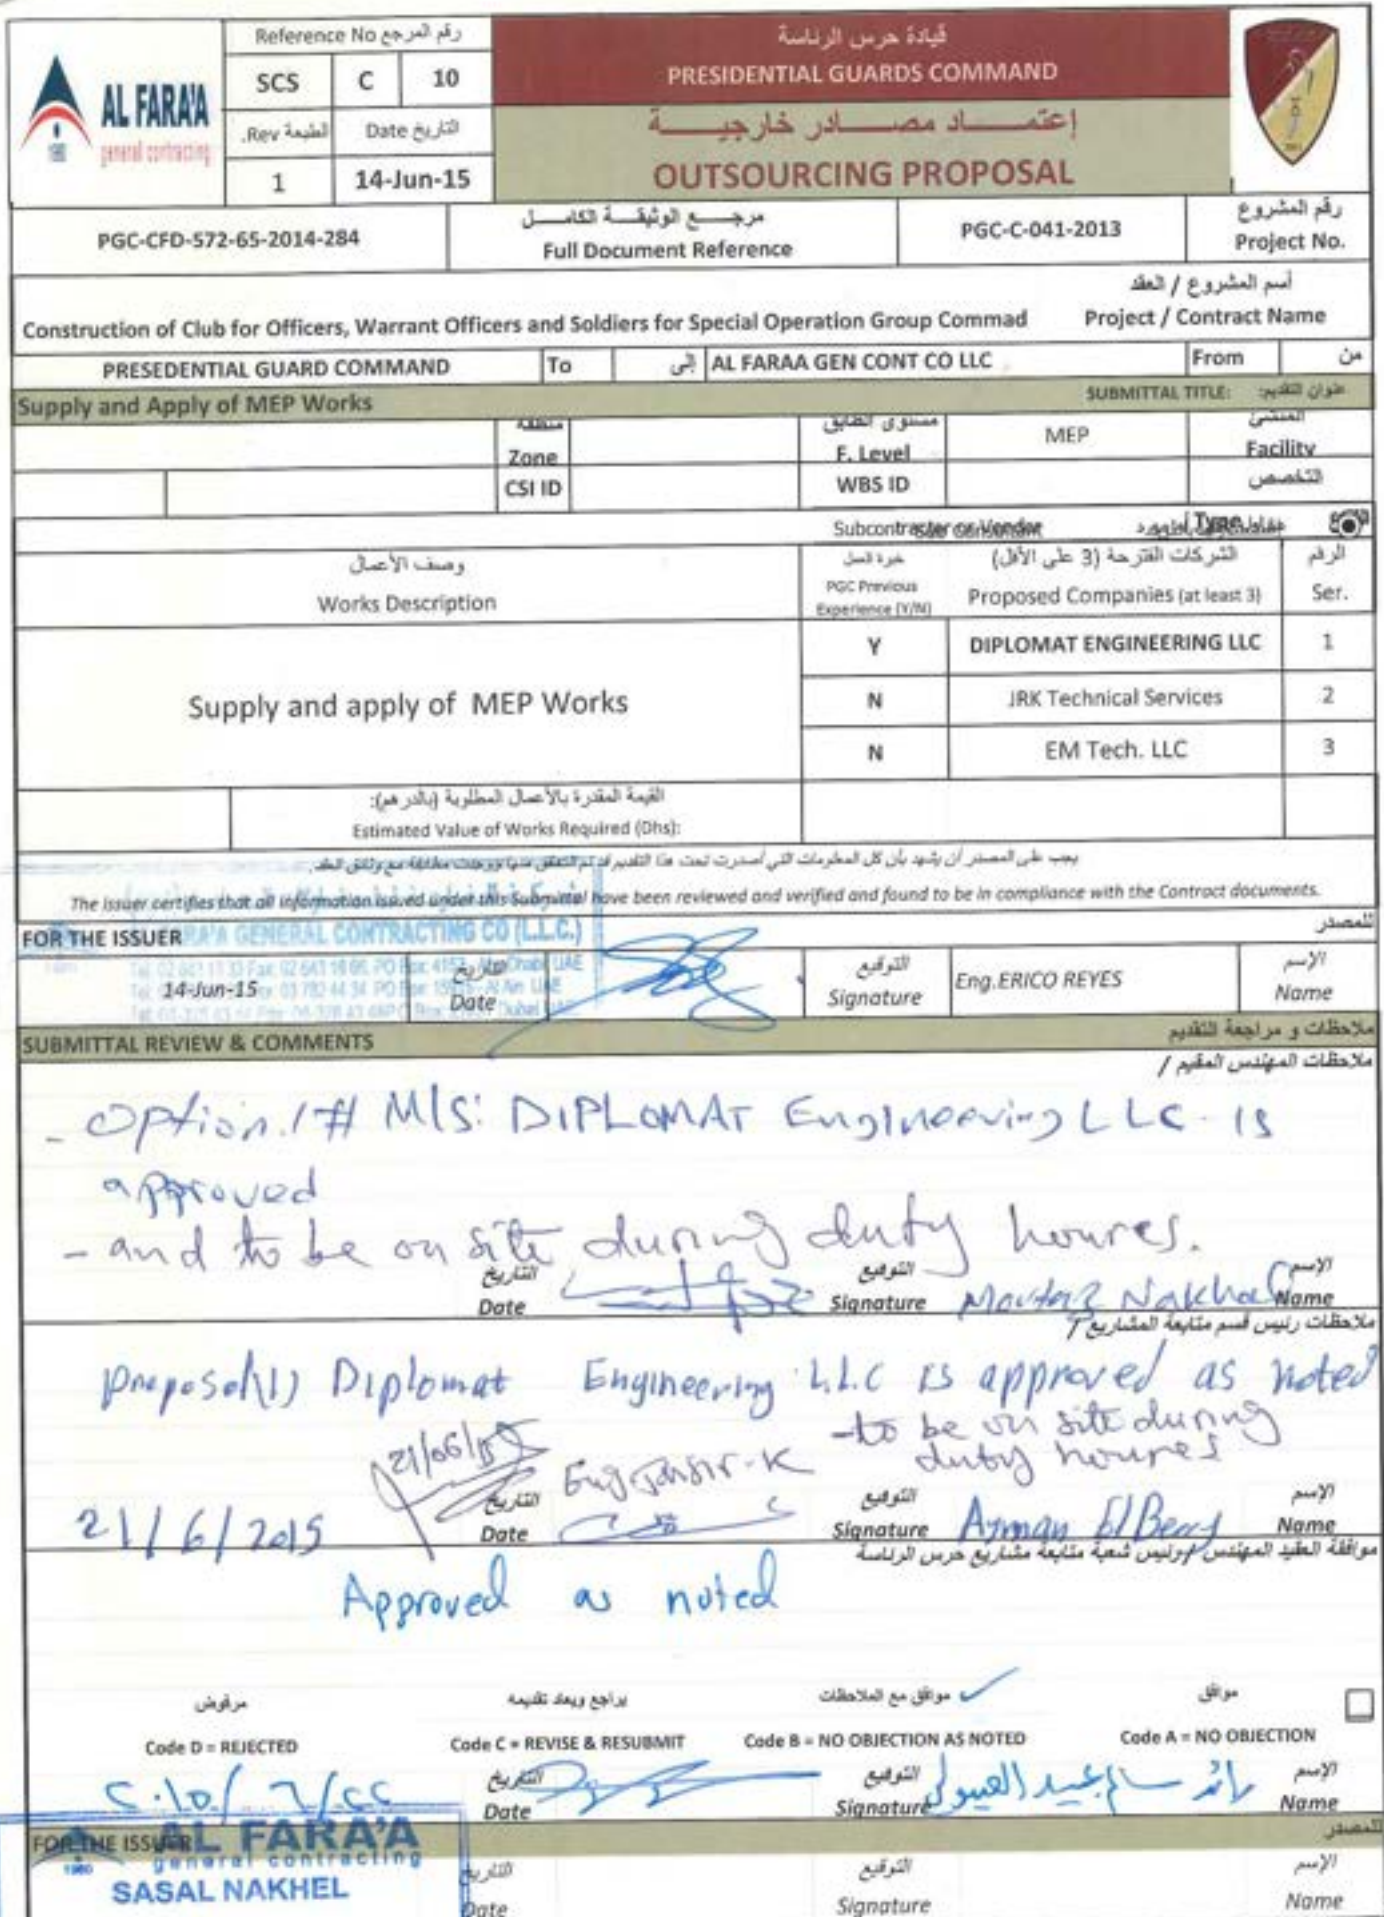 Reference No رقم المرجع
SCS C 10
Rev. الطبعة Date التاريخ
1 14-Jun-15
AL FARA'A
general contracting
قيادة حرس الرئاسة
PRESIDENTIAL GUARDS COMMAND
إعتمـــــاد مصـــادر خارجيـــــة
OUTSOURCING PROPOSAL
PGC-CFD-572-65-2014-284
مرجـــع الوثيقـــة الكامـــل
Full Document Reference
PGC-C-041-2013
رقم المشروع
Project No.
أسم المشروع / العقد
Construction of Club for Officers, Warrant Officers and Soldiers for Special Operation Group Commad
Project / Contract Name
PRESEDENTIAL GUARD COMMAND To إلى AL FARAA GEN CONT CO LLC From من
Supply and Apply of MEP Works SUBMITTAL TITLE: عنوان التقديم:
منطقة
Zone
مستوى الطابق
F. Level
MEP
المنشئ
Facility
CSI ID WBS ID التخصص
Subcontractor or Vendor Type
وصف الأعمال
Works Description
خبرة العمل
PGC Previous
Experience (Y/N)
الشركات المقترحة (3 على الأقل)
Proposed Companies (at least 3)
الرقم
Ser.
Supply and apply of MEP Works
Y DIPLOMAT ENGINEERING LLC 1
N JRK Technical Services 2
N EM Tech. LLC 3
القيمة المقدرة بالأعمال المطلوبة (بالدرهم):
Estimated Value of Works Required (Dhs):
يجب على المصدر أن يشهد بأن كل المعلومات التي أصدرت تحت هذا التقديم قد تم التحقق منها ووجدت مطابقة مع وثائق العقد.
The issuer certifies that all information issued under this Submittal have been reviewed and verified and found to be in compliance with the Contract documents.
FOR THE ISSUER للمصدر
GENERAL CONTRACTING CO (L.L.C.)
14-Jun-15
التاريخ
Date
التوقيع
Signature
Eng.ERICO REYES
الإسم
Name
SUBMITTAL REVIEW & COMMENTS ملاحظات و مراجعة التقديم
ملاحظات المهندس المقيم /
- Option.1# M/S: DIPLOMAT Engineering LLC - is
approved
- and to be on site during duty houres.
التاريخ
Date
التوقيع
Signature
Moutaz Nakhal
الإسم
Name
ملاحظات رئيس قسم متابعة المشاريع /
Proposal(1) Diplomat Engineering L.L.C is approved as noted
- to be on site during
duty houres
21/06/15
21/6/2015
التاريخ
Date
التوقيع
Signature
Ayman ElBery
الإسم
Name
موافقة العقيد المهندس / رئيس شعبة متابعة مشاريع حرس الرئاسة
Approved as noted
مرفوض يراجع ويعاد تقديمه موافق مع الملاحظات موافق
Code D = REJECTED Code C = REVISE & RESUBMIT Code B = NO OBJECTION AS NOTED Code A = NO OBJECTION
التاريخ
Date
التوقيع
Signature
الإسم
Name
FOR THE ISSUER للمصدر
AL FARA'A
general contracting
1980
SASAL NAKHEL
التاريخ
Date
التوقيع
Signature
الإسم
Name